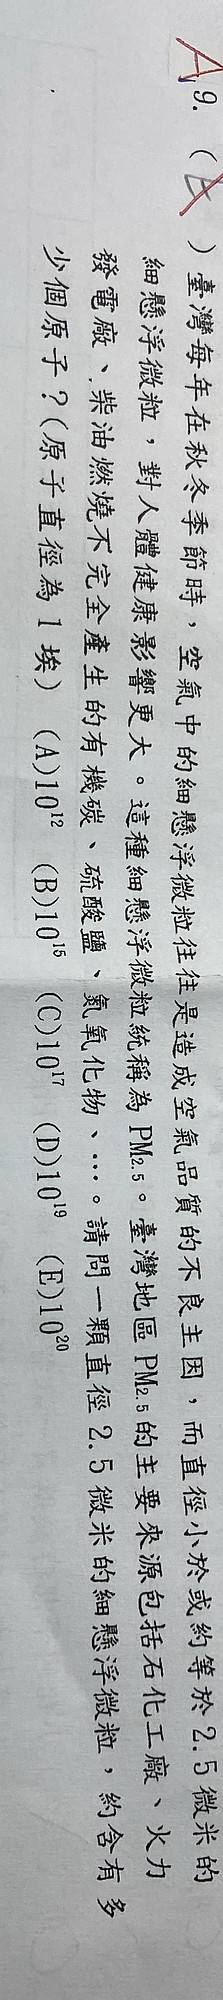 A 9. ( E ) 臺灣每年在秋冬季節時，空氣中的細懸浮微粒往往是造成空氣品質的不良主因，而直徑小於或約等於 2.5 微米的
細懸浮微粒，對人體健康影響更大。這種細懸浮微粒統稱為 PM₂.₅。臺灣地區 PM₂.₅ 的主要來源包括石化工廠、火力
發電廠、柴油燃燒不完全產生的有機碳、硫酸鹽、氮氧化物、…。請問一顆直徑 2.5 微米的細懸浮微粒，約含有多
少個原子？(原子直徑為 1 埃) (A)10¹² (B)10¹⁵ (C)10¹⁷ (D)10¹⁹ (E)10²⁰